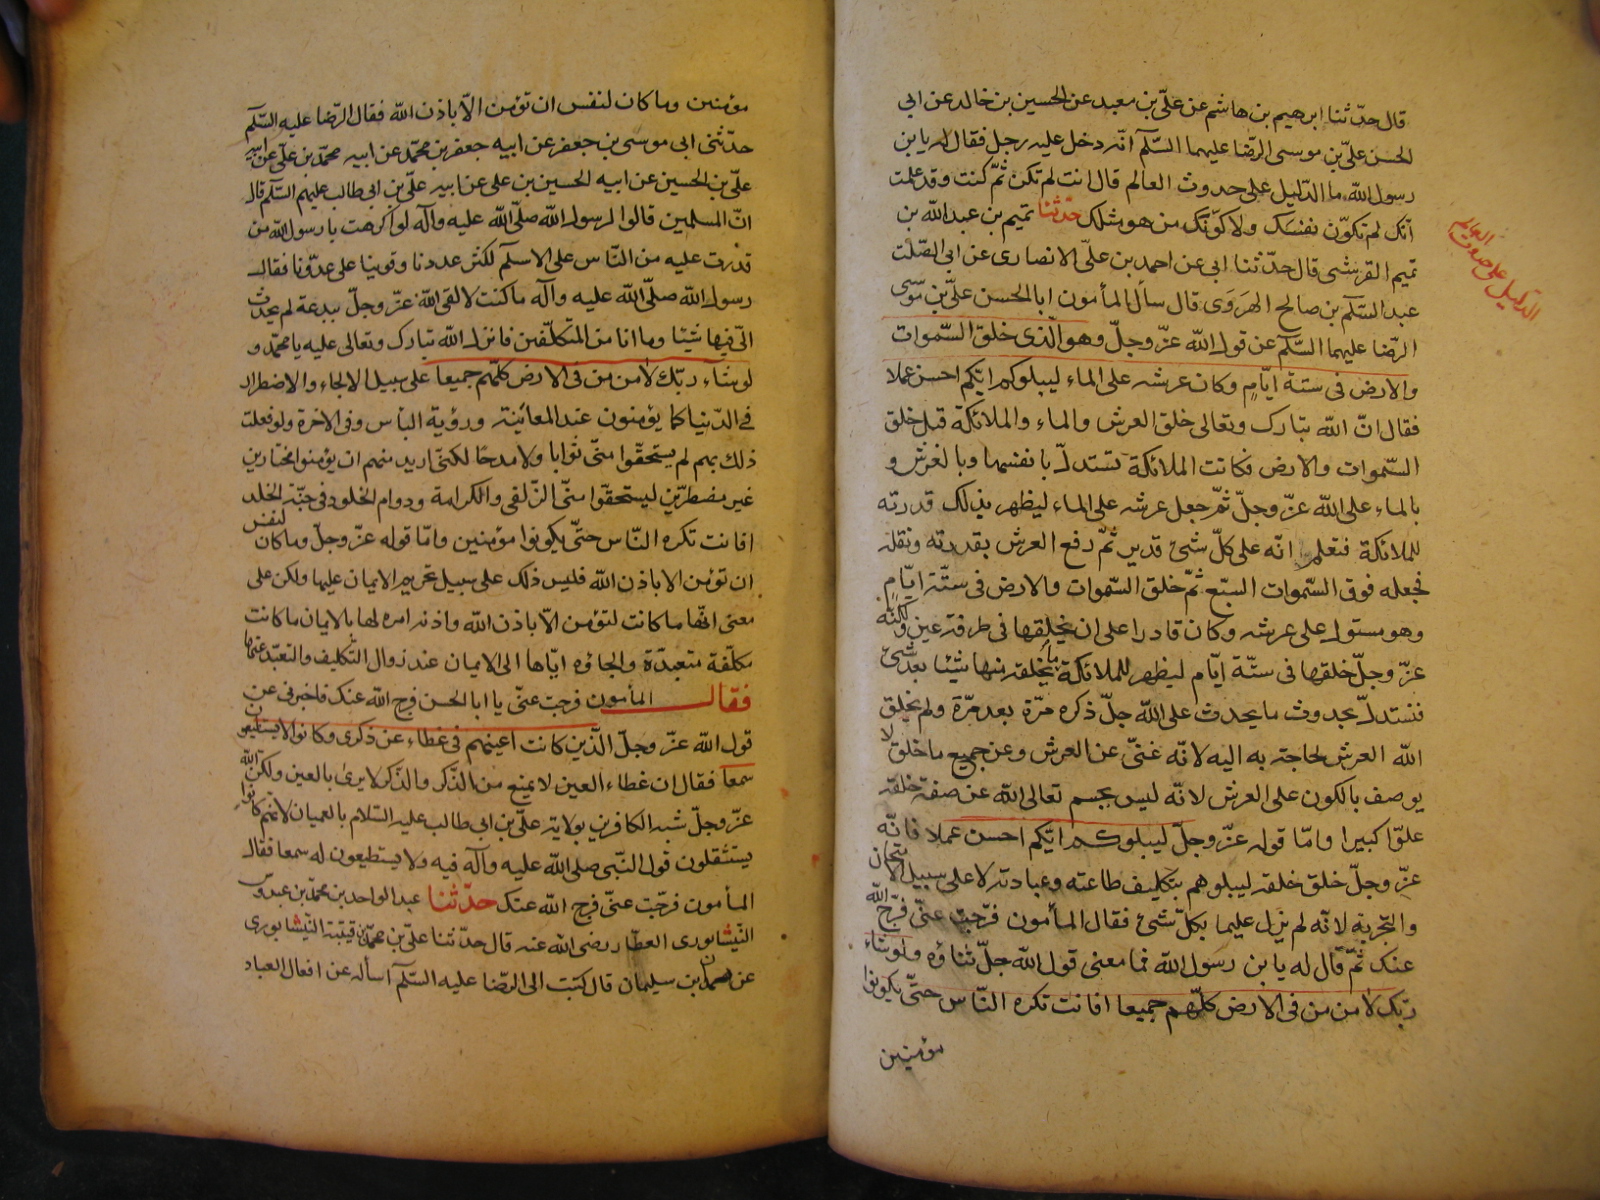 قال حدّثنا ابرهيم بن هاشم عن علىّ بن معبد عن الحسين بن خالد عن ابى
الحسن علىّ بن موسى الرضّا عليهما السّلم انّه دخل عليه رجل فقال له يا بن
رسول الله ما الدّليل على حدوث العالم قال انت لم تكن ثمّ كنت وقد علمت
انّك لم تكوّن نفسك ولا كوّنك من هو مثلك حدّثنا تميم بن عبد الله بن
تميم القرشى قال حدّثنا ابى عن احمد بن علىّ الانصارى عن ابى الصّلت
عبد السّلم بن صالح الهَرَوى قال سأل المأمون ابا الحسن علىّ بن موسى
الرضّا عليهما السّلم عن قول الله عزّ وجلّ وهو الّذى خلق السّموات
والارض فى ستة ايّامٍ وكان عرشه على الماء ليبلوكم ايّكم احسن عملا
فقال انّ الله تبارك وتعالى خلق العرش والماء والملائكة قبل خلق
السّموات والارض فكانت الملائكة تستدلّ بانفسها وبالعرش و
بالماء على الله عزّ وجلّ ثمّ جعل عرشه على الماء ليظهر بذلك قدرته
للملائكة فتعلم انّه على كلّ شئ قدير ثمّ رفع العرش بقدرته ونقله
فجعله فوق السّموات السّبع ثمّ خلق السّموات والارض فى ستّة ايّامٍ
وهو مستول على عرشه وكان قادرا على ان يخلقها فى طرفة عين ولكنّه
عزّ وجلّ خلقها فى ستّة ايّام ليظهر للملائكة ما يخلقه منها شيئا بعد شئ
فتستدلّ بحدوث ما يحدث على الله جلّ ذكره مرّة بعد مرّة ولم يخلق
الله العرش لحاجة به اليه لانّه غنىّ عن العرش وعن جميع ما خلق لا
يوصف بالكون على العرش لانّه ليس بجسم تعالى الله عن صفة خلقه
علوّا كبيرا وامّا قوله عزّ وجلّ ليبلوكم ايّكم احسن عملا فانّه
عزّ وجلّ خلق خلقه ليبلوهم بتكليف طاعته وعبادته لا على سبيل الامتحان
والتّجربة لانّه لم يزل عليما بكلّ شئ فقال المأمون فرّجت عنّى فرّج الله
عنك ثمّ قال له يا بن رسول الله فما معنى قول الله جلّ ثناؤه ولو شاء
ربّك لأمن من فى الارض كلّهم جميعا افانت تكره النّاس حتّى يكونوا
مؤمنين
الدليل على حدوث العالم
مؤمنين وما كان لنفس ان تؤمن الّا باذن الله فقال الرّضا عليه السّلم
حدّثنى ابى موسى بن جعفر عن ابيه جعفر بن محمّد عن ابيه محمّد بن علىّ عن ابيه
علىّ بن الحسين عن ابيه الحسين بن على عن ابيه علىّ بن ابى طالب عليهم السّلم قال
انّ المسلمين قالوا لرسول الله صلّى الله عليه وآله لو اكرهت يا رسول الله من
قدرت عليه من النّاس على الاسلم لكثر عددنا وقوينا على عدوّنا فقال
رسول الله صلّى الله عليه وآله ما كنت لالقى الله عزّ وجلّ ببدعة لم يحدث
الىّ فيها شيئا وما انا من المتكلّفين فانزل الله تبارك وتعالى عليه يا محمّد و
لو شاء ربّك لأمن من فى الارض كلّهم جميعا على سبيل الالجاء والاضطرار
فى الدّنيا كما يؤمنون عند المعاينة ورؤية البأس وفى الاخرة ولو فعلت
ذلك بهم لم يستحقّوا منّى ثوابا ولا مدحًا لكنّى اريد منهم ان يؤمنوا مختارين
غير مضطرّين ليستحقّوا منّى الزّلفى والكرامة ودوام الخلود فى جنّة الخلد
افانت تكره النّاس حتّى يكونوا مؤمنين وامّا قوله عزّ وجلّ وما كان لنفس
ان تؤمن الا باذن الله فليس ذلك على سبيل تحريم الايمان عليها ولكن على
معنى انّها ما كانت لتؤمن الّا باذن الله واذنه امره لها بالايمان ما كانت
مكلّفة متعبدّة والجاؤه ايّاها الى الايمان عند زوال التّكليف والتعبّد عنها
فقال المأمون فرجت عنّى يا ابا الحسن فرج الله عنك فاخبرنى عن
قول الله عزّ وجلّ الّذين كانت اعينهم فى غطاء عن ذكرى وكانوا لا يستطيعون
سمعا فقال ان غطاء العين لا يمنع من الذّكر والذّكر لا يرى بالعين ولكن الله
عزّ وجلّ شبه الكافرين بولاية علىّ بن ابى طالب عليه السّلام بالعميان لانّهم كانوا
يستثقلون قول النّبى صلى الله عليه وآله فيه ولا يستطيعون له سمعا فقال
المأمون فرّجت عنّى فرج الله عنك حدّثنا عبد الواحد بن محمّد بن عبدوس
النّيشابورى العطّار رضى الله عنه قال حدّثنا علىّ بن محمّد بن قتيبة النّيشابورى
عن حمدان بن سليمان قال كتبت الى الرّضا عليه السّلم اسأله عن افعال العباد